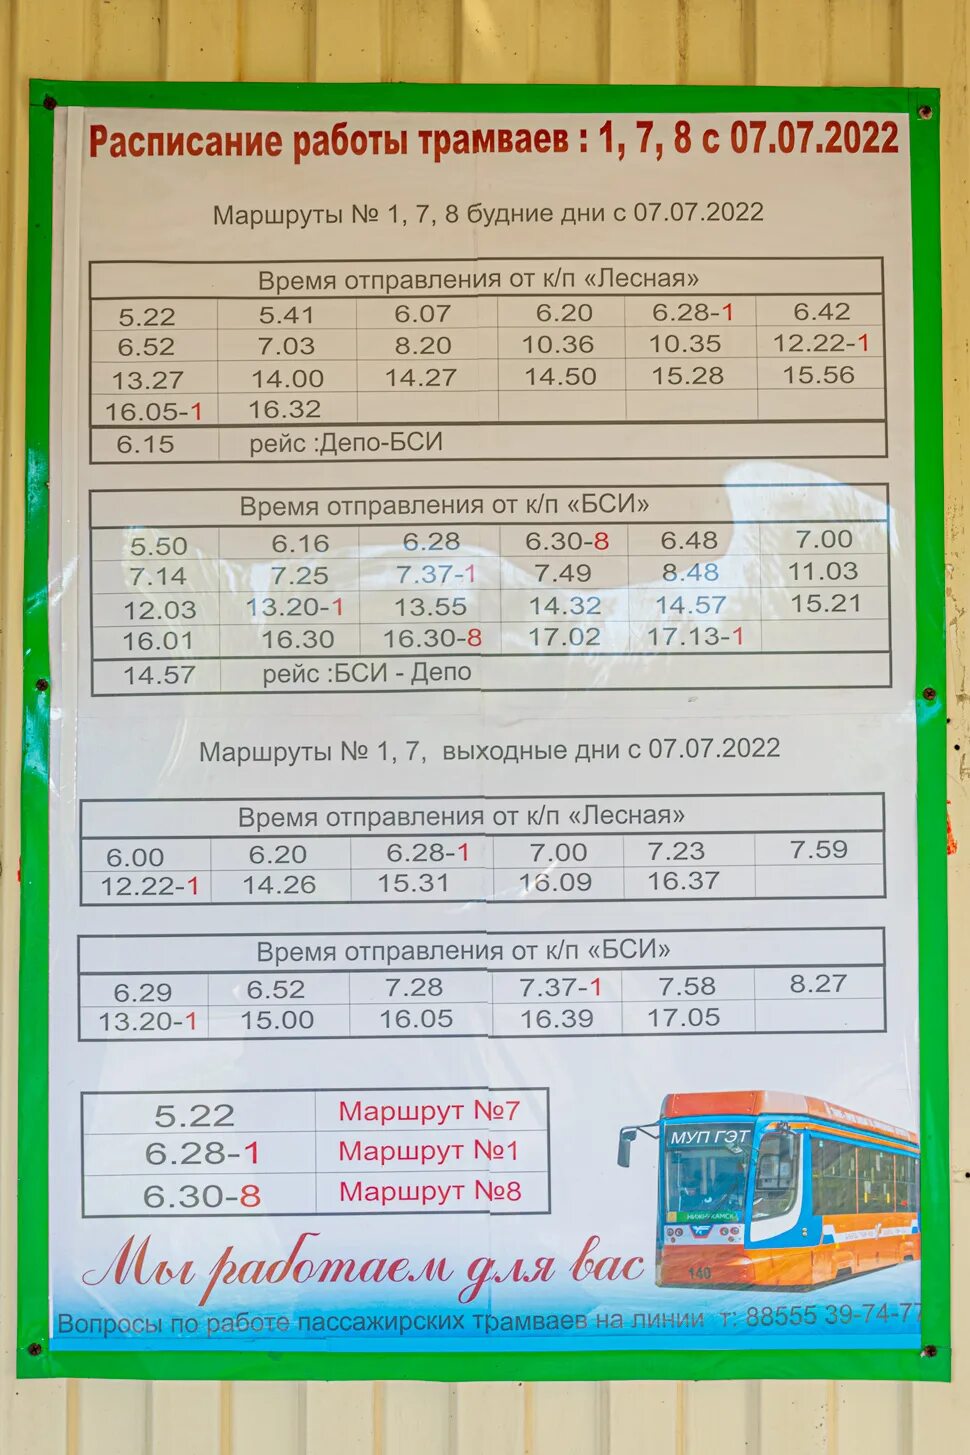 Расписание работы трамваев : 1, 7, 8 с 07.07.2022
Маршруты № 1, 7, 8 будние дни с 07.07.2022
Время отправления от к/п «Лесная»
5.22 5.41 6.07 6.20 6.28-1 6.42
6.52 7.03 8.20 10.36 10.35 12.22-1
13.27 14.00 14.27 14.50 15.28 15.56
16.05-1 16.32
6.15 рейс :Депо-БСИ
Время отправления от к/п «БСИ»
5.50 6.16 6.28 6.30-8 6.48 7.00
7.14 7.25 7.37-1 7.49 8.48 11.03
12.03 13.20-1 13.55 14.32 14.57 15.21
16.01 16.30 16.30-8 17.02 17.13-1
14.57 рейс :БСИ - Депо
Маршруты № 1, 7, выходные дни с 07.07.2022
Время отправления от к/п «Лесная»
6.00 6.20 6.28-1 7.00 7.23 7.59
12.22-1 14.26 15.31 16.09 16.37
Время отправления от к/п «БСИ»
6.29 6.52 7.28 7.37-1 7.58 8.27
13.20-1 15.00 16.05 16.39 17.05
5.22 Маршрут №7
6.28-1 Маршрут №1
6.30-8 Маршрут №8
МУП ГЭТ
НИЖНЕКАМСК
140
Мы работаем для вас
Вопросы по работе пассажирских трамваев на линии т: 88555 39-74-77